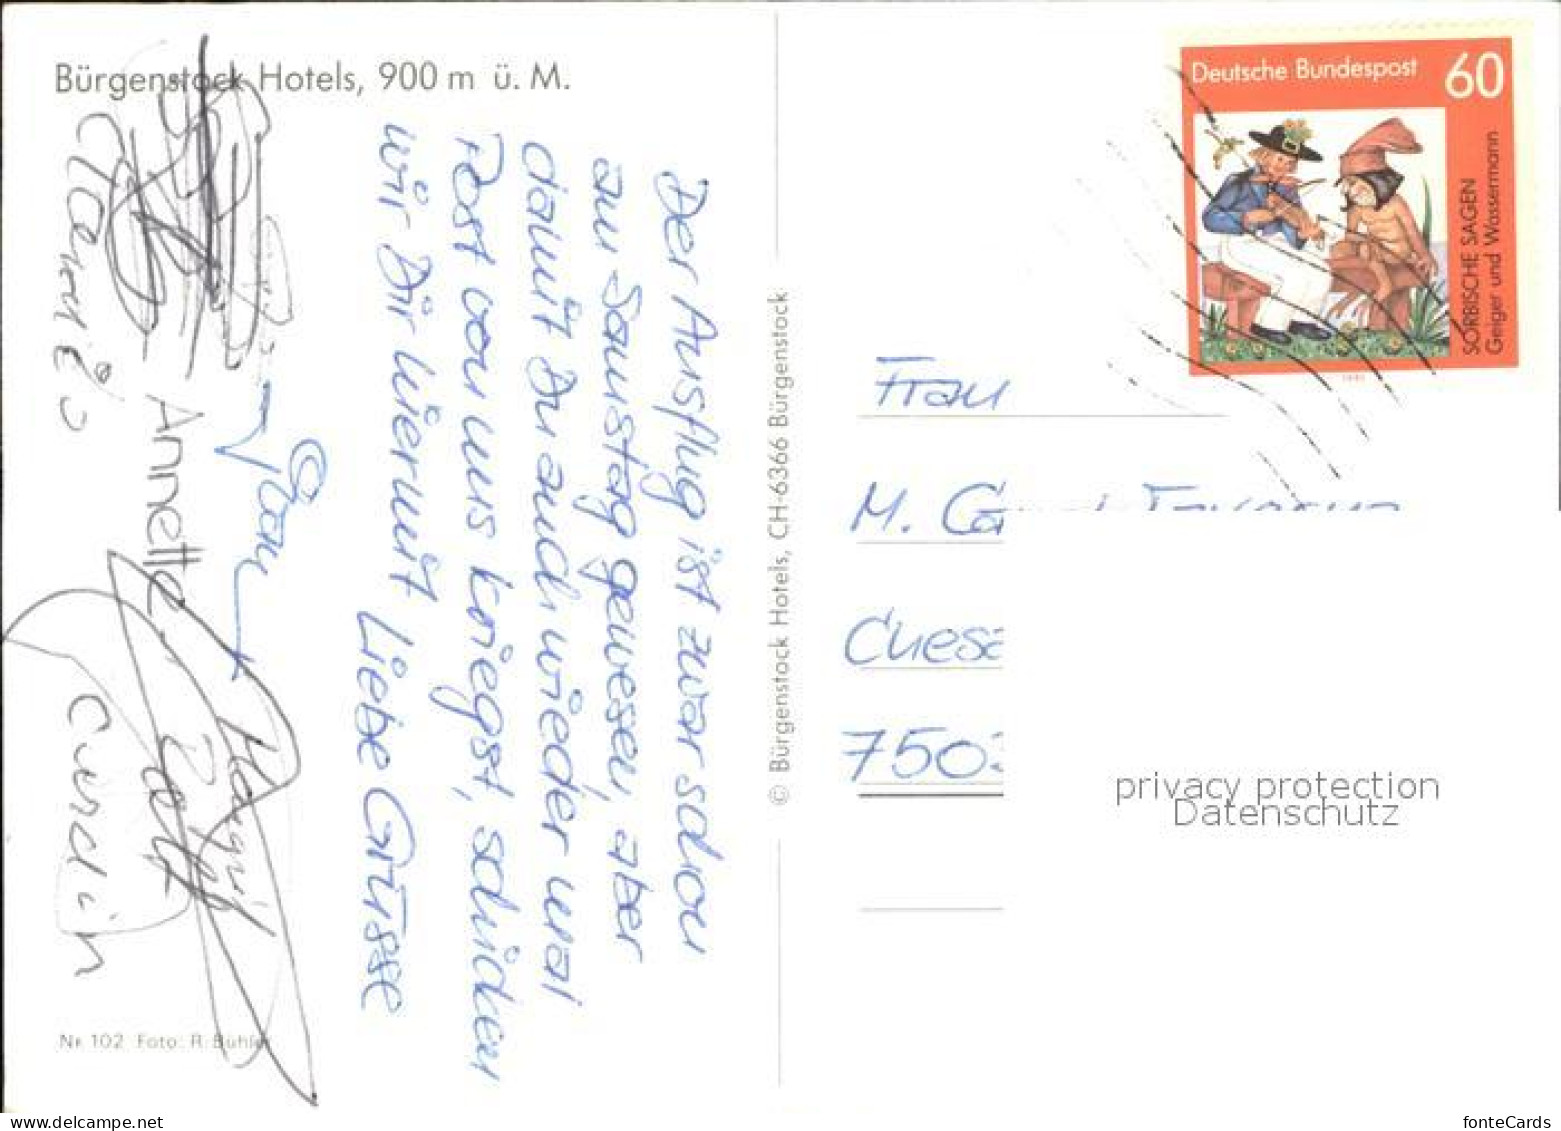 Bürgenstock Hotels, 900 m ü. M.
Der Ausflug ist zwar schon
am Samstag gewesen, aber
damit Du auch wieder mal
Post von uns kriegst, schicken
wir Dir hiermit Liebe Grüsse
Annette
Curdin
Nr. 102 Foto: R. Bühler
© Bürgenstock Hotels, CH-6366 Bürgenstock
Deutsche Bundespost 60
SORBISCHE SAGEN
Geiger und Wassermann
Frau
M.
privacy protection
Datenschutz
fonteCards